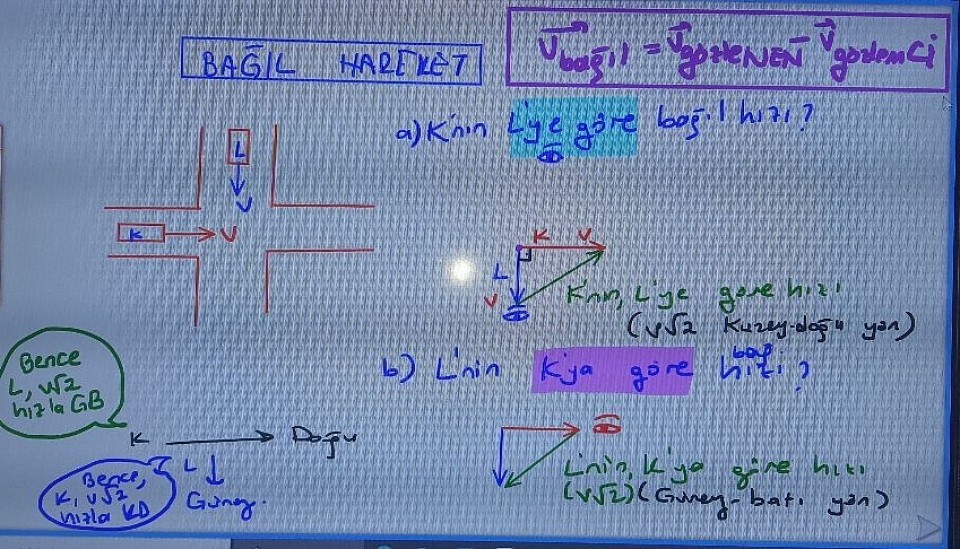 BAĞIL HAREKET
V bağıl = V gözleNEN - V gözlemCi
a) K'nın L'ye göre bağıl hızı?
L
V
K V
K V
L
V
K'nın, L'ye göre hızı
(V√2 Kuzey-doğu yön)
b) L'nin K'ya göre bağ hızı?
Bence
L, V√2
hızla GB
K Doğu
L
Güney.
Bence,
K, V√2
hızla KD
L'nin, K'ya göre hızı
(V√2) (Güney-batı yön)